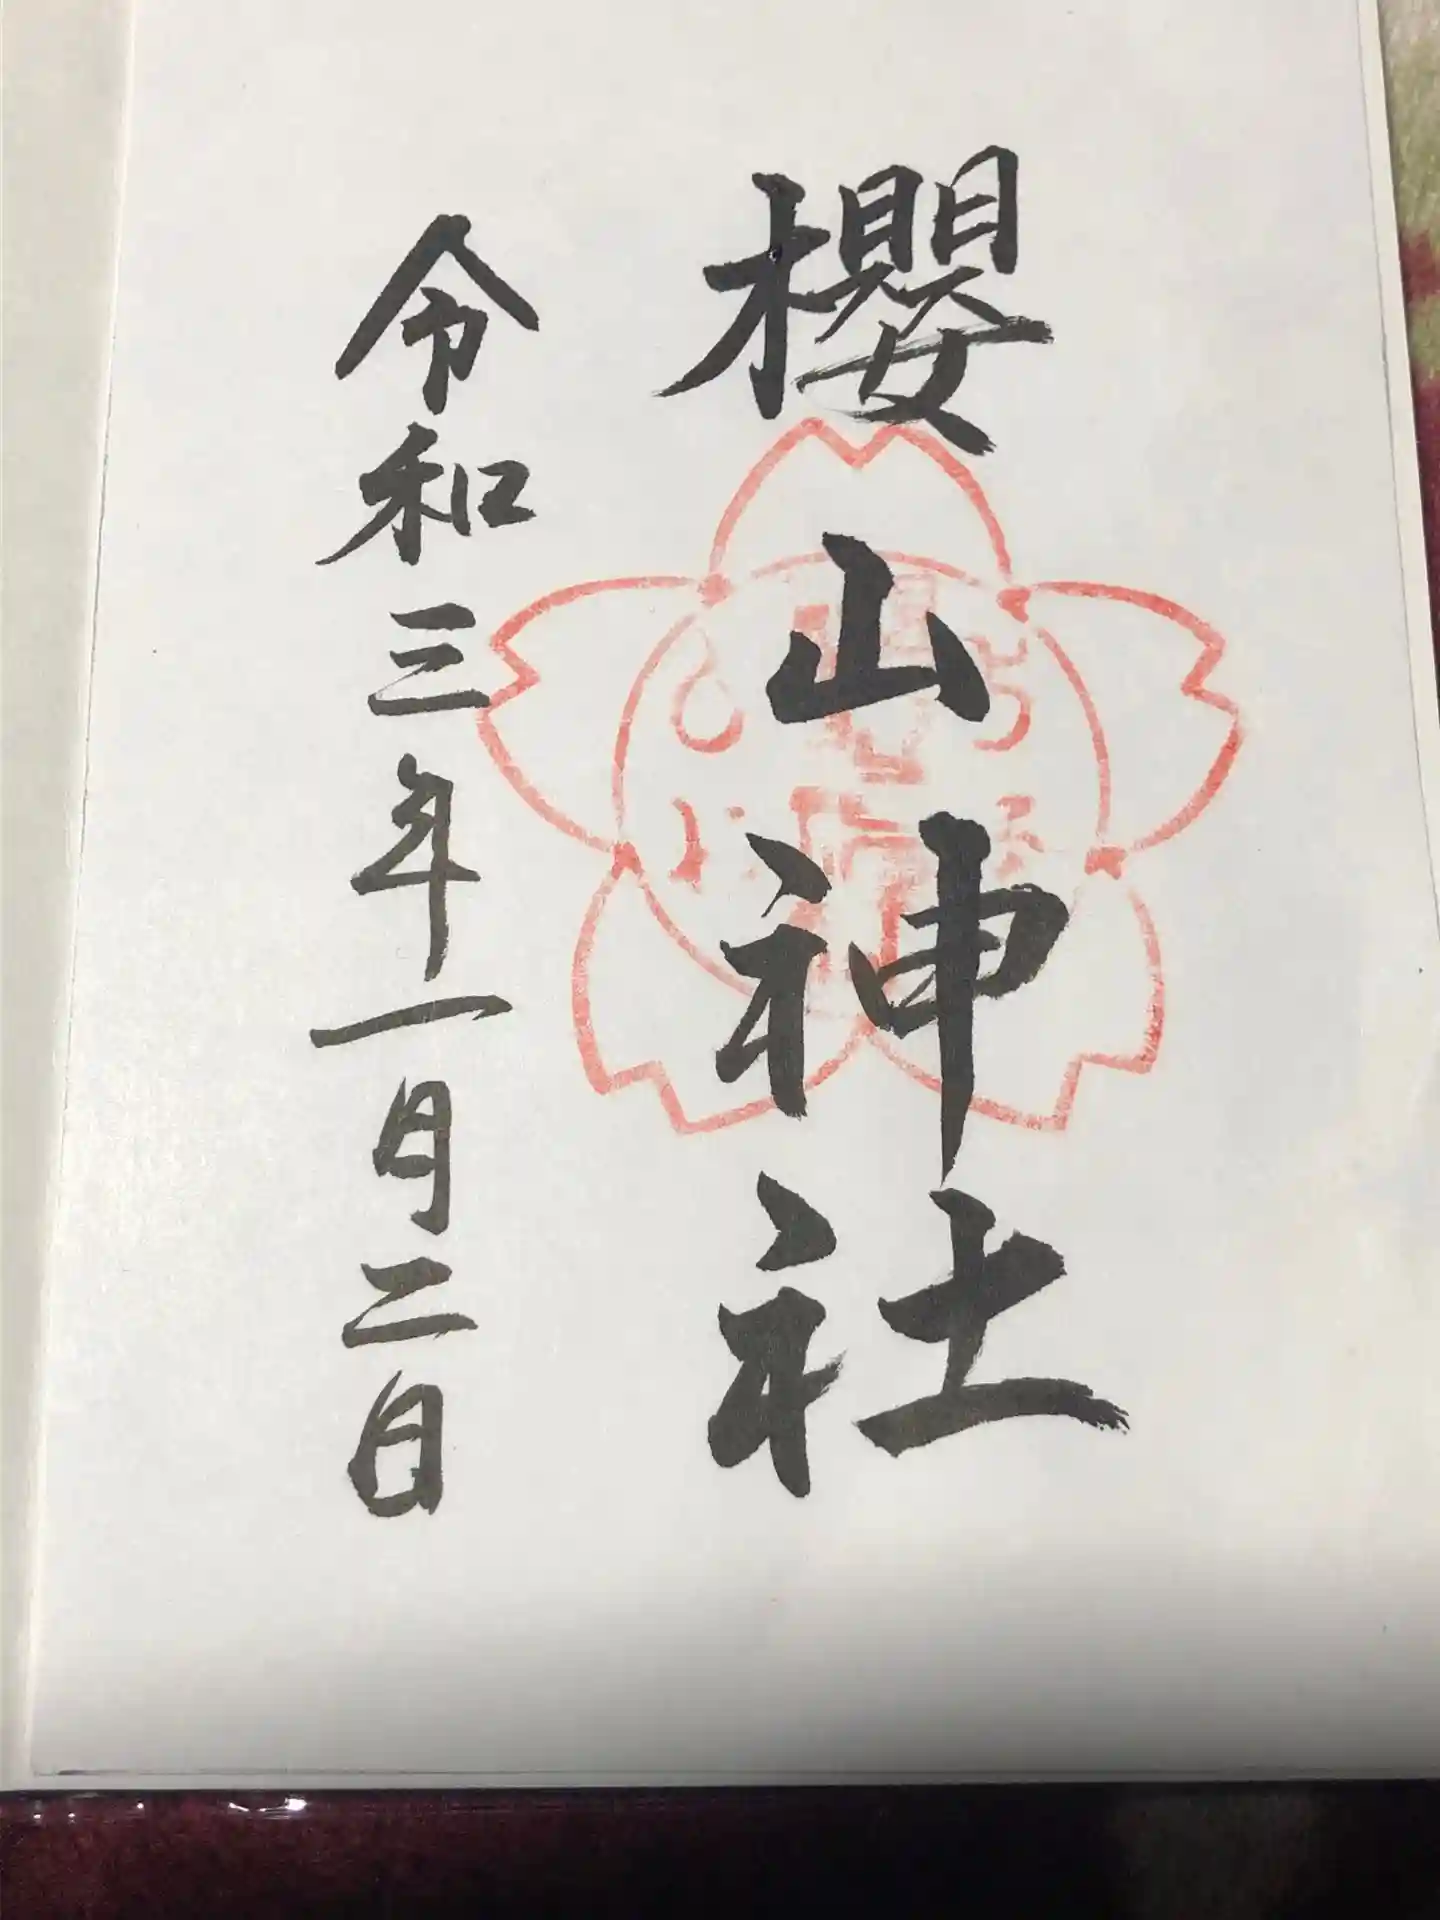 櫻山神社
令和三年一月二日